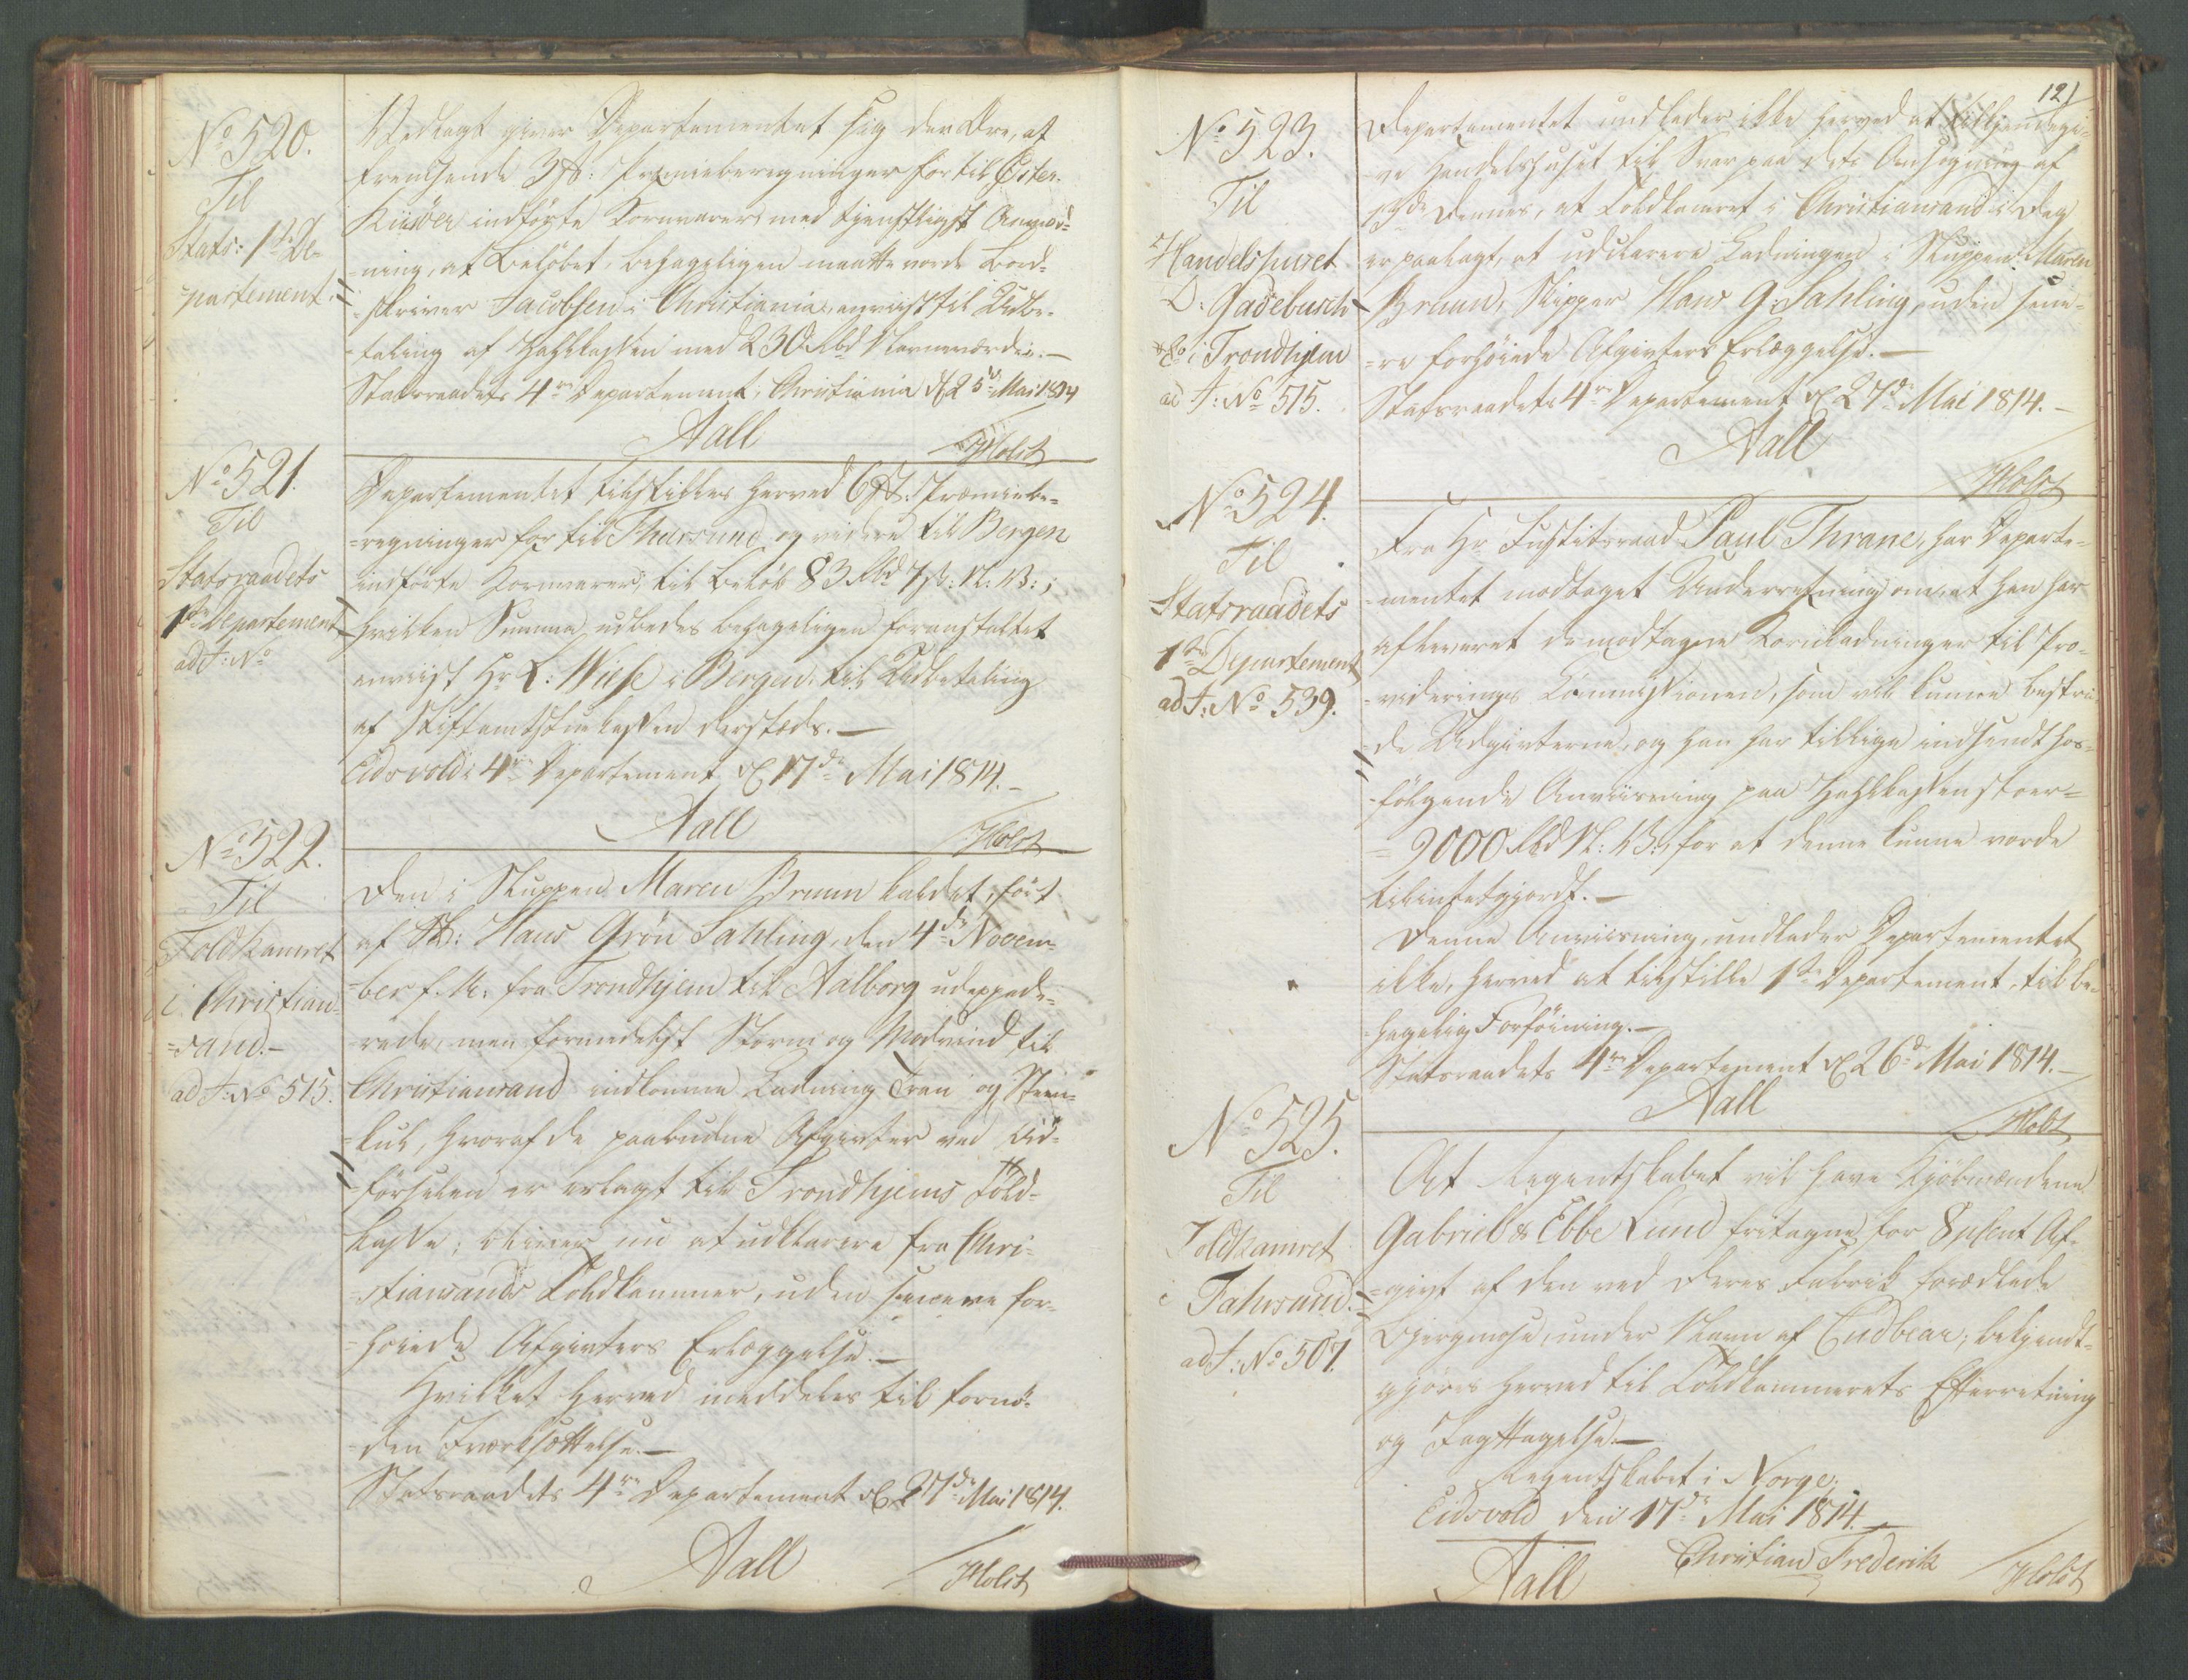 No 520.
Til
Stats: 1ste De-
partement.
Vedlagt giver Departementet sig den Ære, at
fremsende 3 St: Præmieberegninger for til Öster-
Riisöer indförte Kornvarer, med tjenstligst Anmod-
ning, at Belöbet behageligen maatte vorde Bord-
skriver Jacobsen i Christiania anviist til Udbe-
taling af Zahlkassen med 230 Rbd Navneværdie.—
Statsraadets 4re Departement, Christiania d 25de Mai 1814
Aall
Holst
No 521.
Til
Statsraadets
1ste Departement
ad J: No
Departementet tilstilles herved 6 St. Præmiebe-
=regninger for til Fharsund og videre til Bergen
indförte Kornvarer, til Belöb 83 Rbd 7 s: N: V:;
hvilken Summa udbedes behageligen foranstaltet
anviist Hr L: Wiese i Bergen til Udbetaling
af Stiftamtstuekassen dersteds.—
Eidsvold i 4re Departement d 17de Mai 1814.—
Aall
Holst
No 522.
Til
Toldkamret
i Christian=
=sand.—
ad J: No 515.
Den i Skuppen Maren Bruun kaldet, fört
af Sk: Hans Grön Sahling, den 4de Novem-
=ber f. A: fra Trondhjem til Aalborg udexpede-
rede, men formedelst Storm og Modvind til
Christiansand indkomne Ladning Tran og Steen-
=kul, hvoraf de paabudne Afgivter ved Ud-
=förselen er erlagt til Trondhjems Told-
kasse; bliver nu at udklarere fra Chri-
=stiansands Toldkammer, uden senere for-
=höiede Afgivters Erlæggelse.—
Hvilket herved meddeles til fornö-
den Iværksættelse.—
Statsraadets 4re Departement d 27de Mai 1814.
Aall
Holst
121
No 523.
Til
Handelshuset
D: Gadebusch
& Co i Trondhjem
ad J: No 515.
Departementet undlader ikke herved at tilkjendegi-
ve Handelshuset til Svar paa dets Ansögning af
dennes, at Toldkamret i Christiansand i Dag
er paalagt, at udklarere Ladningen i Skuppen Maren
Bruun, Skipper Hans G: Sahling, uden sene-
=re forhöiede Afgivters Erlæggelse.—
Statsraadets 4re Departement d 27de Mai 1814.—
Aall
Holst
No 524.
Til
Statsraadets
1ste Departement
ad J: No 539.
Fra Hr Justitsraad Paul Thrane, har Departe-
=mentet modtaget Underretning om, at han har
afleveret de modtagne Kornladninger til Pro-
=viderings Commissionen, som vil kunne bestri-
de Udgivterne, og han har tillige indsendt hos-
=fölgende Anviisning paa Zahlkassen stor
= 9000 Rbd N: V:, for at denne kunne vorde
tilintetgjordt.—
Denne Anviisning, undlader Departementet
ikke, herved at tilstille 1ste Departement, til be-
hagelig Forföining.—
Statsraadets 4re Departement d 26de Mai 1814.—
Aall
Holst
No 525.
Til
Toldkamret
i Fahrsund.
ad J: No 507.
At Regentskabet vil have Kjöbmændene
Gabriel & Ebbe Lund fritagne for 8 pCent Af-
=givt af den ved deres Fabrik forædlede
Bjergmose, under Navn af Cudbear, bekjendt-
gjöres herved til Toldkammerets Efterretning
og Iagttagelse.—
Regentskabet i Norge,
Eidsvold den 17de Mai 1814.
Christian Frederik
Aall
Holst